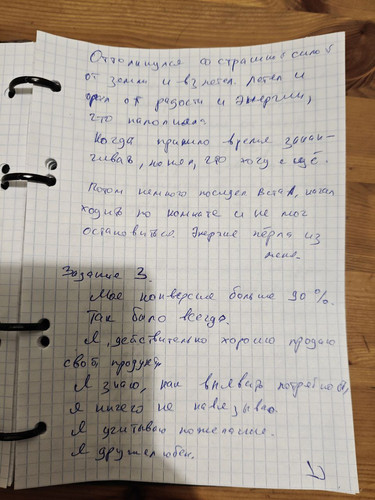 Оттолкнулся со страшной силой
от земли и взлетел. Летел и
орал от радости и энергии,
что наполняла.
Когда пришло время закан-
чивать, понял, что хочу ещё.
Потом немного посидел встал, начал
ходить по комнате и не мог
остановиться. Энергия пёрла из
меня.
Задание 3.
Моя конверсия больше 90 %.
Так было всегда.
Я, действительно хорошо продаю
свой продукт
Я знаю, как выявить потребность,
я ничего не навязываю.
Я учитываю пожелания.
Я дружелюбен.